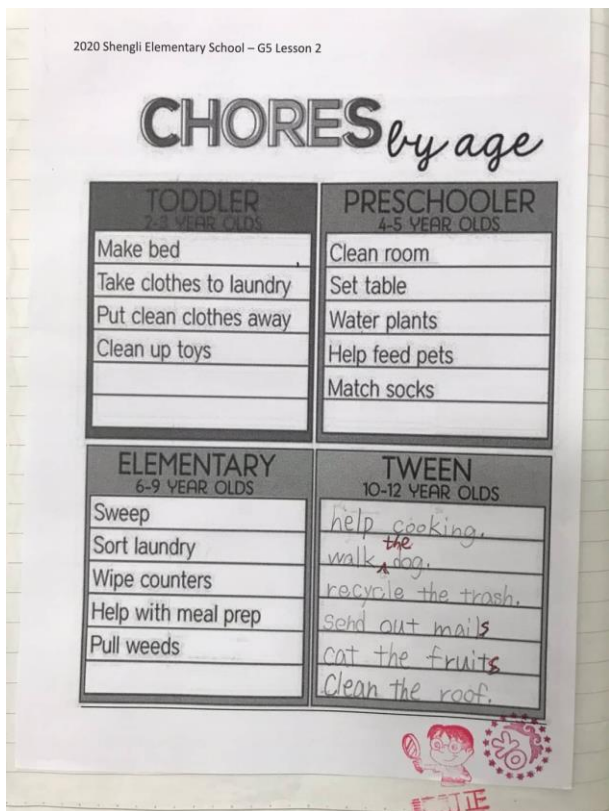 2020 Shengli Elementary School – G5 Lesson 2
CHORES by age
TODDLER
2-3 YEAR OLDS
Make bed
Take clothes to laundry
Put clean clothes away
Clean up toys
PRESCHOOLER
4-5 YEAR OLDS
Clean room
Set table
Water plants
Help feed pets
Match socks
ELEMENTARY
6-9 YEAR OLDS
Sweep
Sort laundry
Wipe counters
Help with meal prep
Pull weeds
TWEEN
10-12 YEAR OLDS
help cooking.
walk the dog.
recycle the trash.
send out mails
cat the fruits
Clean the roof.
訂正